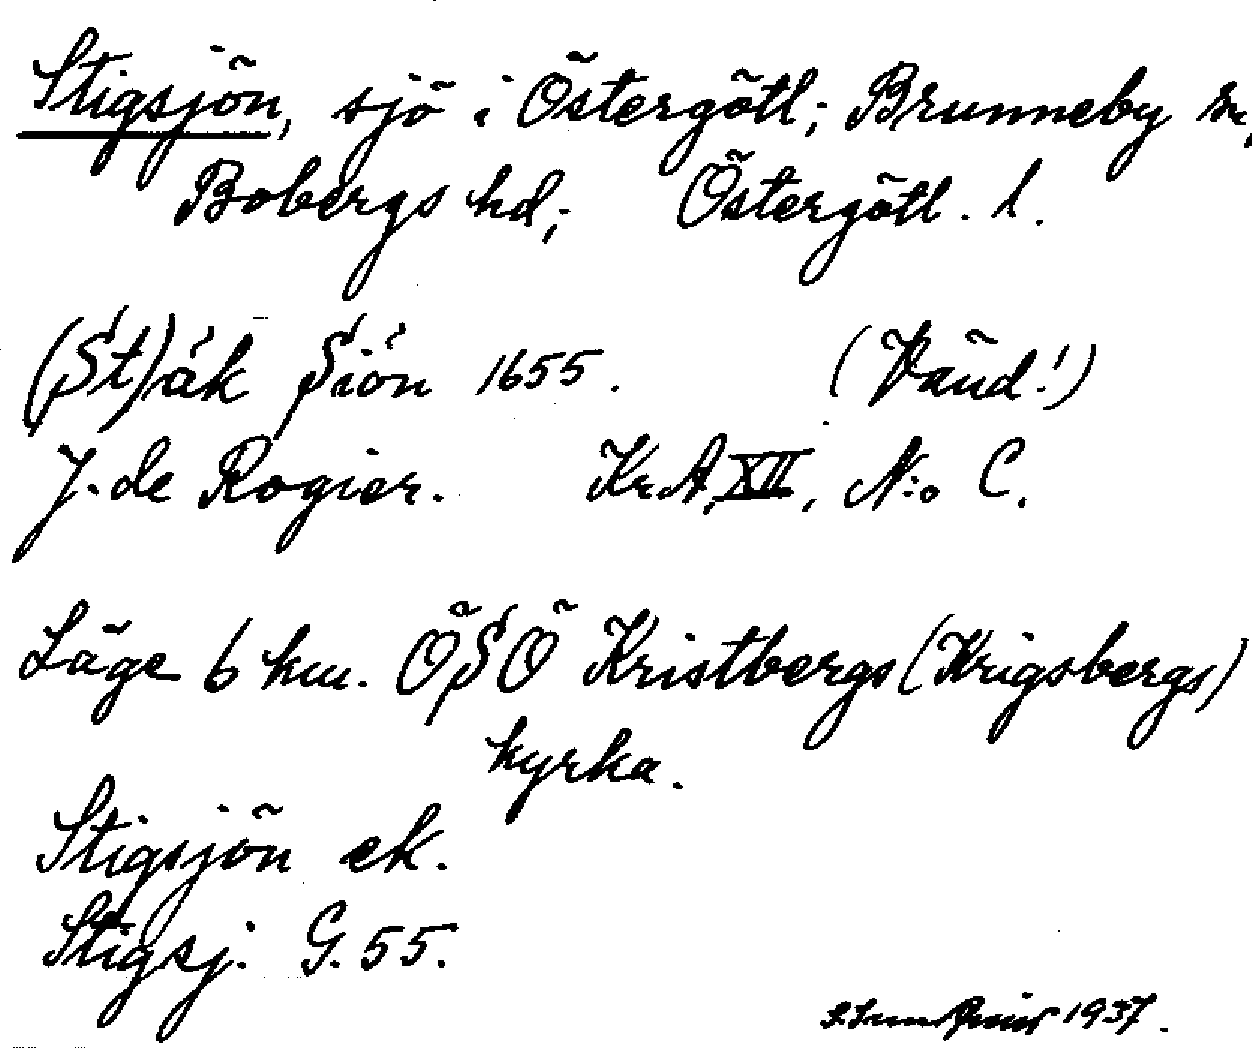 Stigsjön, sjö i Östergötl; Brunneby sn,
Bobergs hd; Östergötl. l.
(St)åk Siön 1655. (Vänd!)
J. de Rogier. KrA, XII, N:o C.
Läge 6 km. ÖSÖ Kristbergs (Krigsbergs)
kyrka.
Stigsjön ek.
Stigsj. G. 55.
1937.